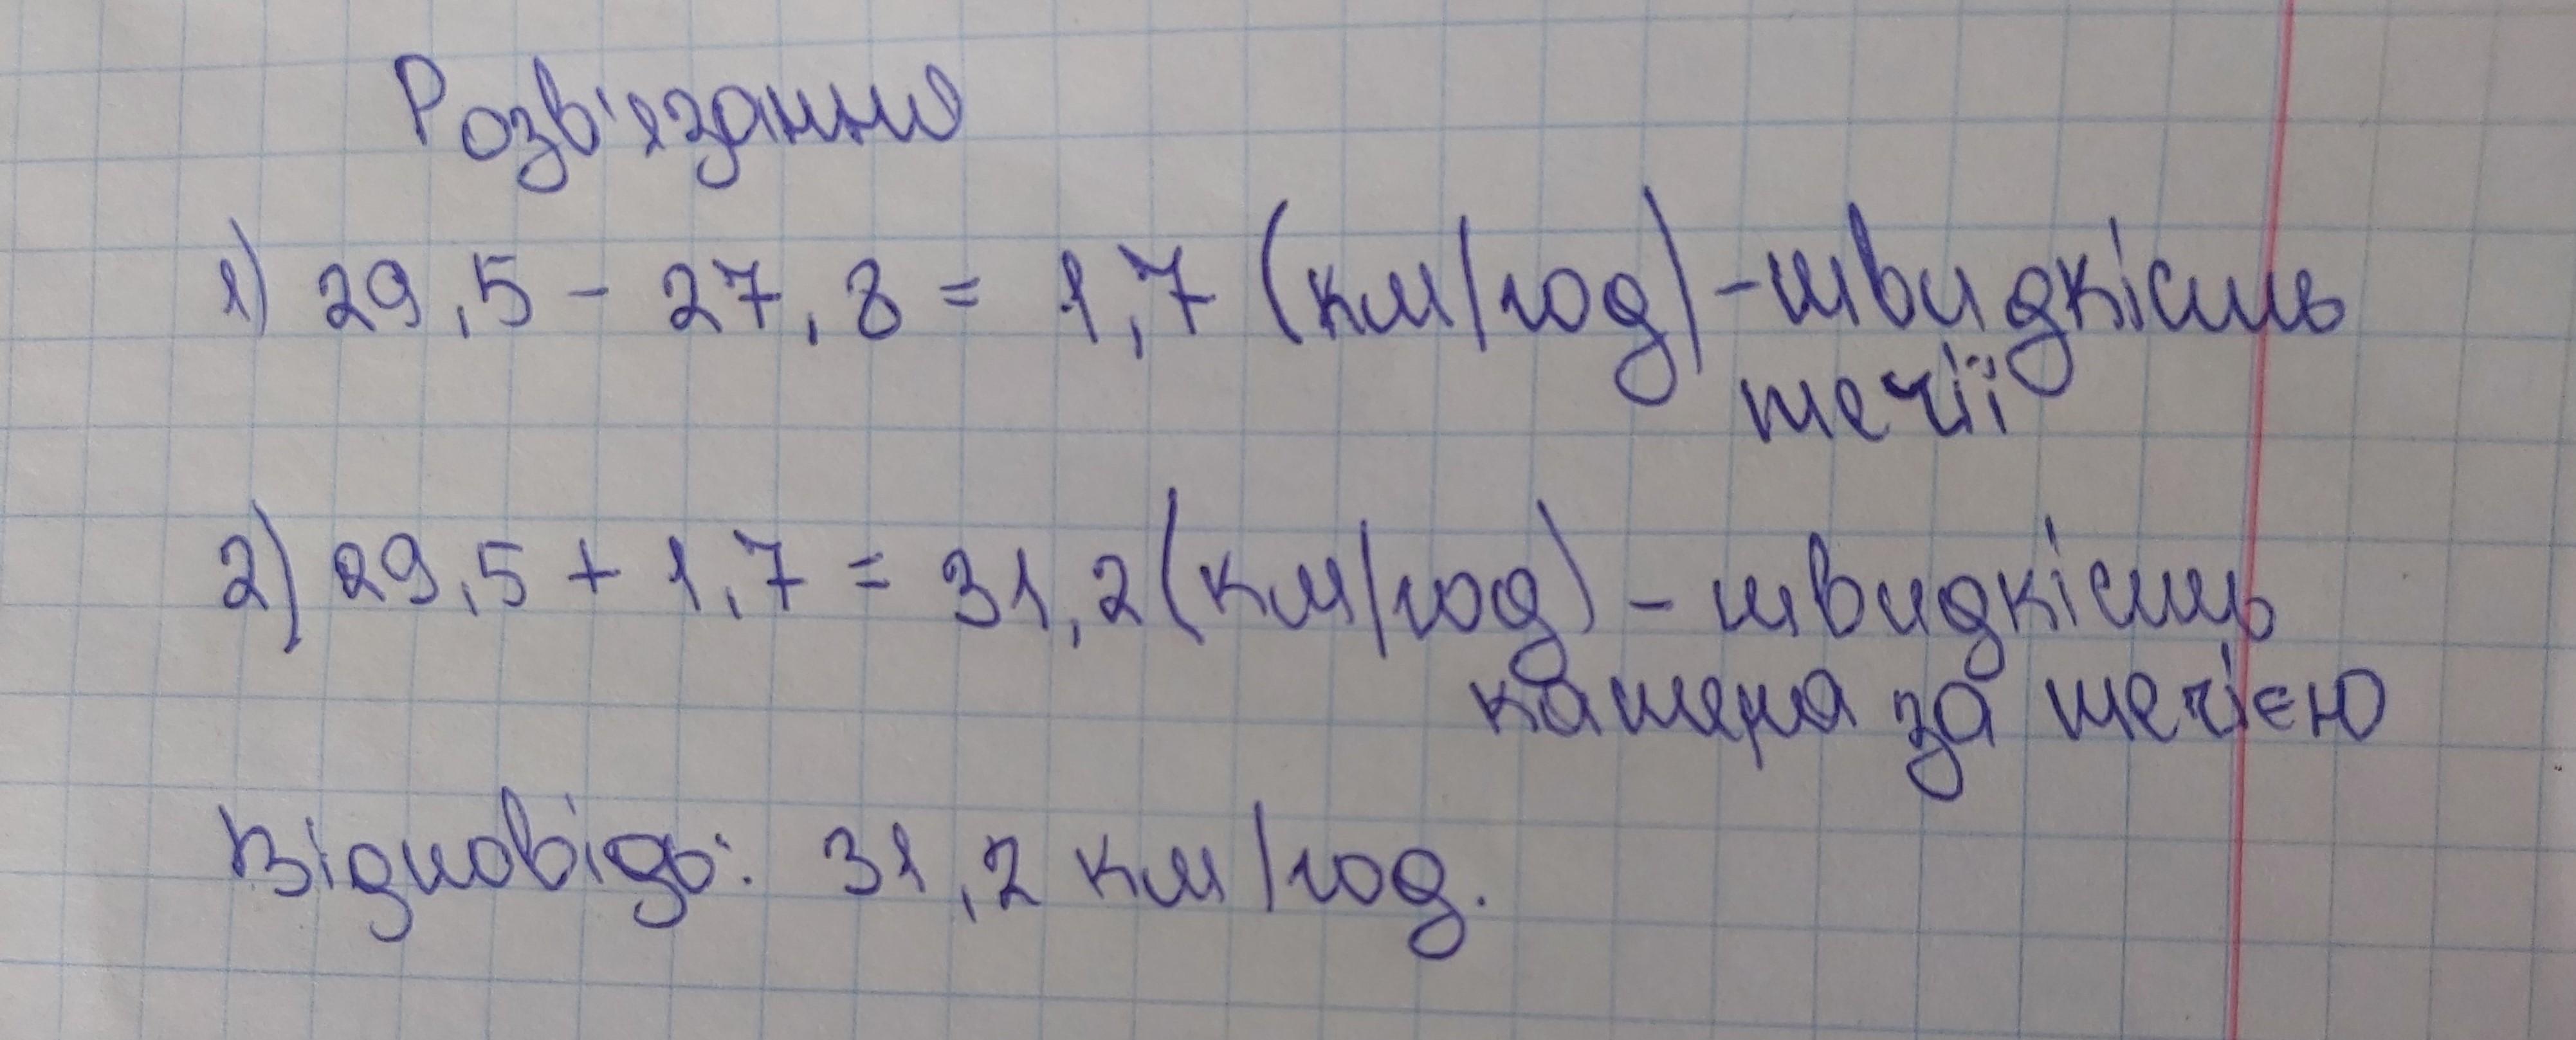 Розв'язання
1) 29,5 - 27,8 = 1,7 (км/год) - швидкість
течії
2) 29,5 + 1,7 = 31,2 (км/год) - швидкість
катера за течією
Відповідь: 31,2 км/год.